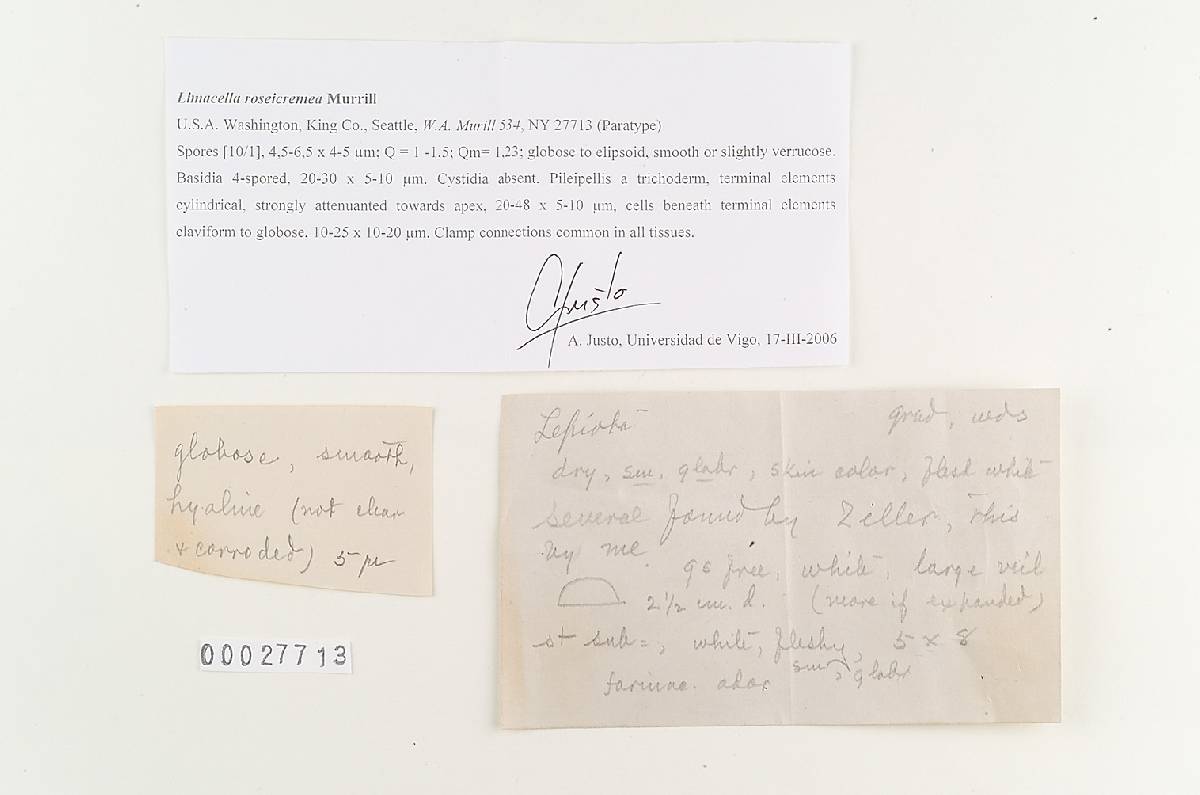 Limacella roseicremea Murrill
U.S.A. Washington, King Co., Seattle, W.A. Murill 534, NY 27713 (Paratype)
Spores [10/1], 4,5-6,5 x 4-5 µm; Q = 1 -1.5; Qm= 1,23; globose to elipsoid, smooth or slightly verrucose.
Basidia 4-spored, 20-30 x 5-10 µm. Cystidia absent. Pileipellis a trichoderm, terminal elements
cylindrical, strongly attenuanted towards apex, 20-48 x 5-10 µm, cells beneath terminal elements
claviform to globose. 10-25 x 10-20 µm. Clamp connections common in all tissues.
AJusto
A. Justo, Universidad de Vigo, 17-III-2006
globose, smooth,
hyaline (not clear
+ corroded) 5 µ
00027713
Lepiota grad, wds
dry, sm. glabr, skin color, flesh white
several found by Zeller, this
by me.
gs free, white, large veil
2 1/2 cm. d. (more if expanded)
st sub=, white, fleshy, 5 x 8
sm, glabr
farinac. odor